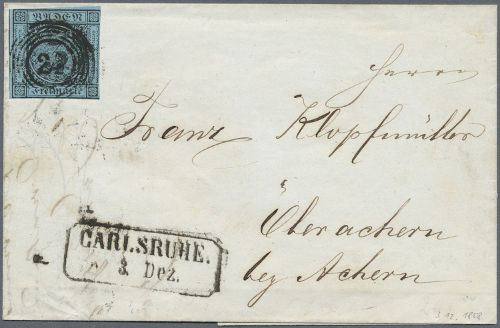 BADEN
22
Freimarke
Herrn
Franz Klopfmüller
Oberachern
bey Achern
CARLSRUHE.
3. Dez.
3. 12. 1858